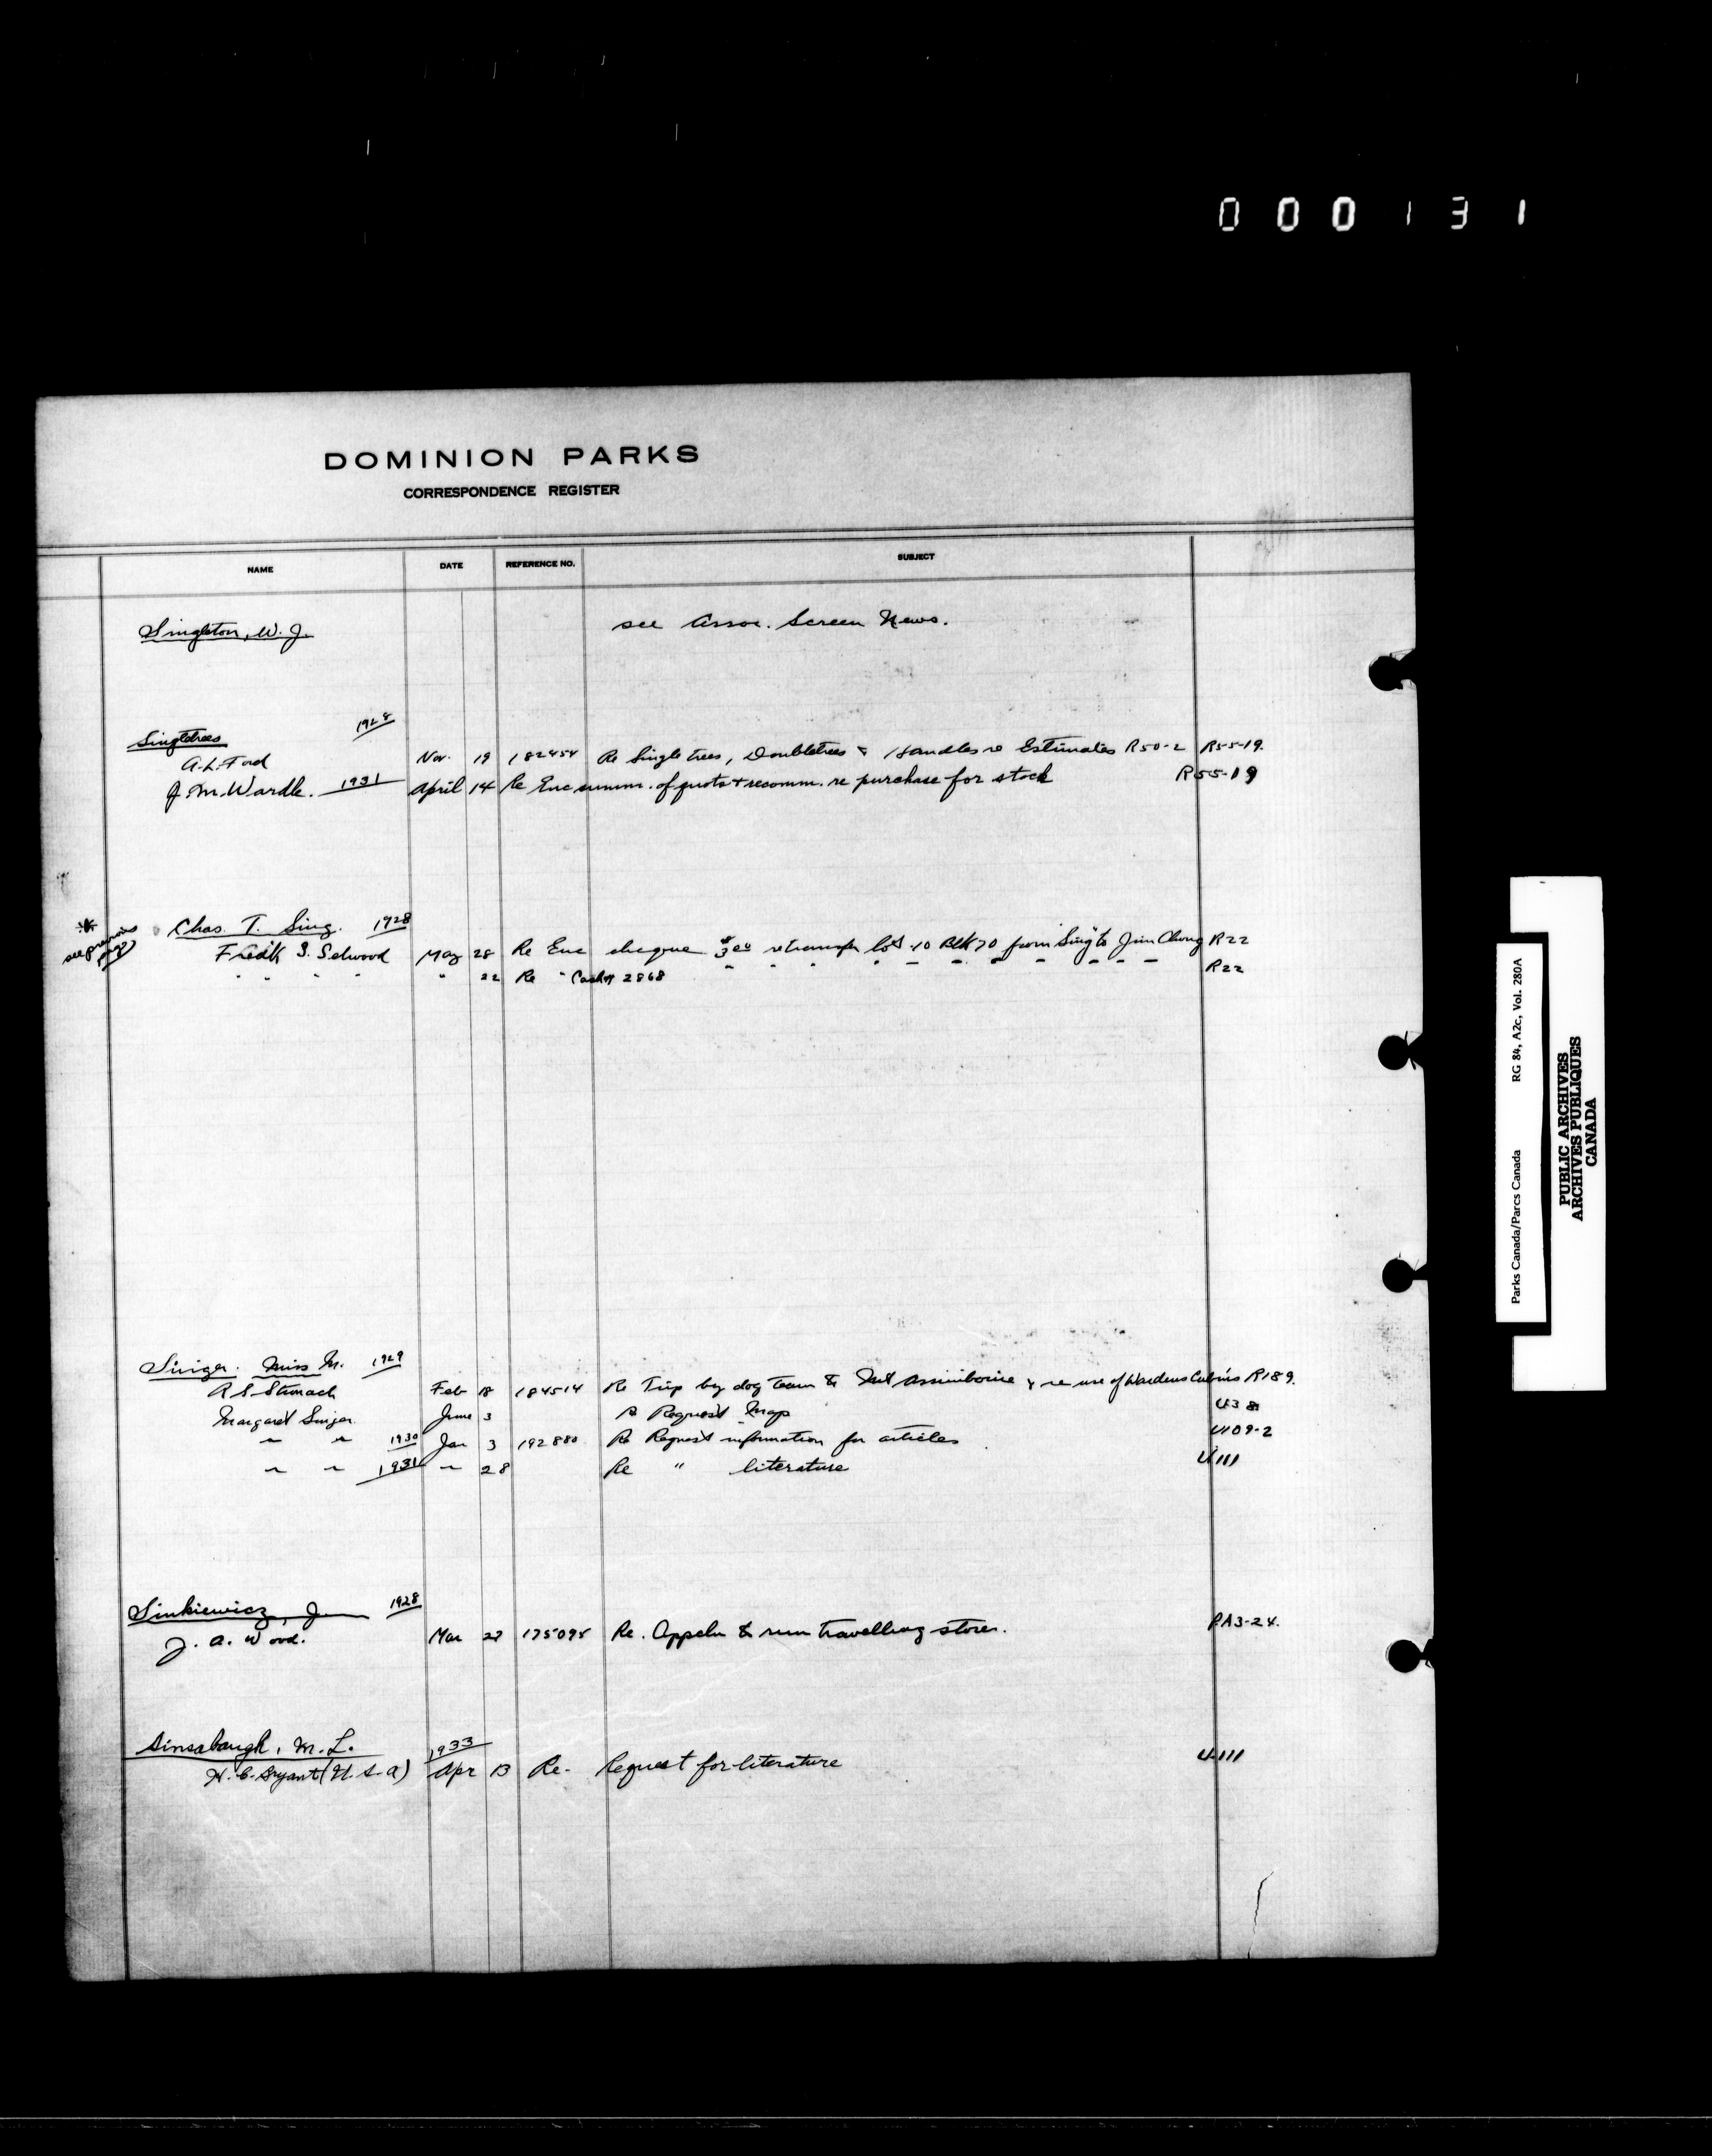 000131
DOMINION PARKS
CORRESPONDENCE REGISTER
NAME DATE REFERENCE NO. SUBJECT
Singleton, W. J. see Assoc. Screen News.
Singletrees 1928
A. L. Ford Nov. 19 182454 Re Singletrees, Doubletrees & Handles re Estimates R50-2 R55-19.
J. M. Wardle. 1931 April 14 Re Enc summ. of quots + recomm. re purchase for stock R55-19
* see previous page
Chas. T. Sing. 1928
Fredk S. Selwood May 28 Re Enc cheque $3.00 re transfer lot 10 Blk 70 from Sing to Jim Chong R22
" " " " " 22 Re " Cash 2868 " " " " " " " " " " R22
Singer. Miss M. 1929
R S Stronach Feb 18 184514 Re Trip by dog team to Mt Assiniboine & re use of Wardens Cabins R189.
Margaret Singer June 3 Re Request Map U38
" " 1930 Jan 3 192880 Re Request information for articles U109-2
" " 1931 " 28 Re " literature U111
Sinkiewicz, J. 1928
J. A. Wood. Mar 27 175095 Re. Appcln to run travelling stores. PA3-24.
Sinsabaugh, M. L. 1933
H. C. Bryant (U.S.A) Apr 13 Re- Request for literature U111
Parks Canada/Parcs Canada RG 84, A2c, Vol. 280A
PUBLIC ARCHIVES
ARCHIVES PUBLIQUES
CANADA